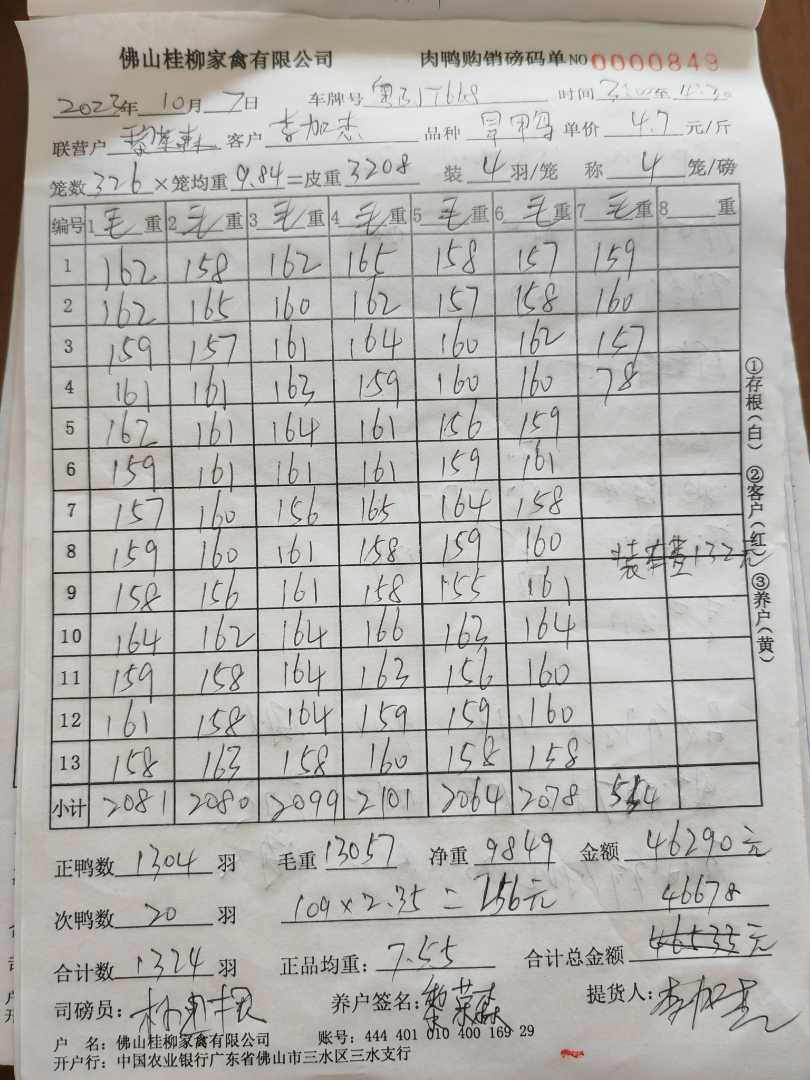 佛山桂柳家禽有限公司 肉鸭购销磅码单 NO 0000849
2023年 10月 7日 车牌号 时间 至
联营户 客户 李加杰 品种 单价 4.7 元/斤
笼数 326 × 笼均重 9.84 = 皮重 3208 装 4 羽/笼 称 4 笼/磅
编号 1 毛 重 2 毛 重 3 毛 重 4 毛 重 5 毛 重 6 毛 重 7 毛 重 8 重
1 162 158 162 165 158 157 159
2 162 165 160 162 157 158 160
3 159 157 161 164 160 162 157
4 161 161 163 159 160 160 78
5 162 161 164 161 156 159
6 159 161 161 161 159 161
7 157 160 156 165 164 158
8 159 160 161 158 159 160 装车费132元
9 158 156 161 158 155 161
10 164 162 164 166 163 164
11 159 158 164 163 156 160
12 161 158 164 159 159 160
13 158 163 158 160 158 158
小计 2081 2080 2099 2101 2064 2078 554
①存根(白) ②客户(红) ③养户(黄)
正鸭数 1304 羽 毛重 13057 净重 9849 金额 46290元
次鸭数 20 羽 109×2.35=256元 46678
合计数 1324 羽 正品均重: 7.55 合计总金额 46533 元
司磅员: 养户签名: 黎菜森 提货人: 李加杰
户 名: 佛山桂柳家禽有限公司 账号: 444 401 010 400 169 29
开户行: 中国农业银行广东省佛山市三水区三水支行